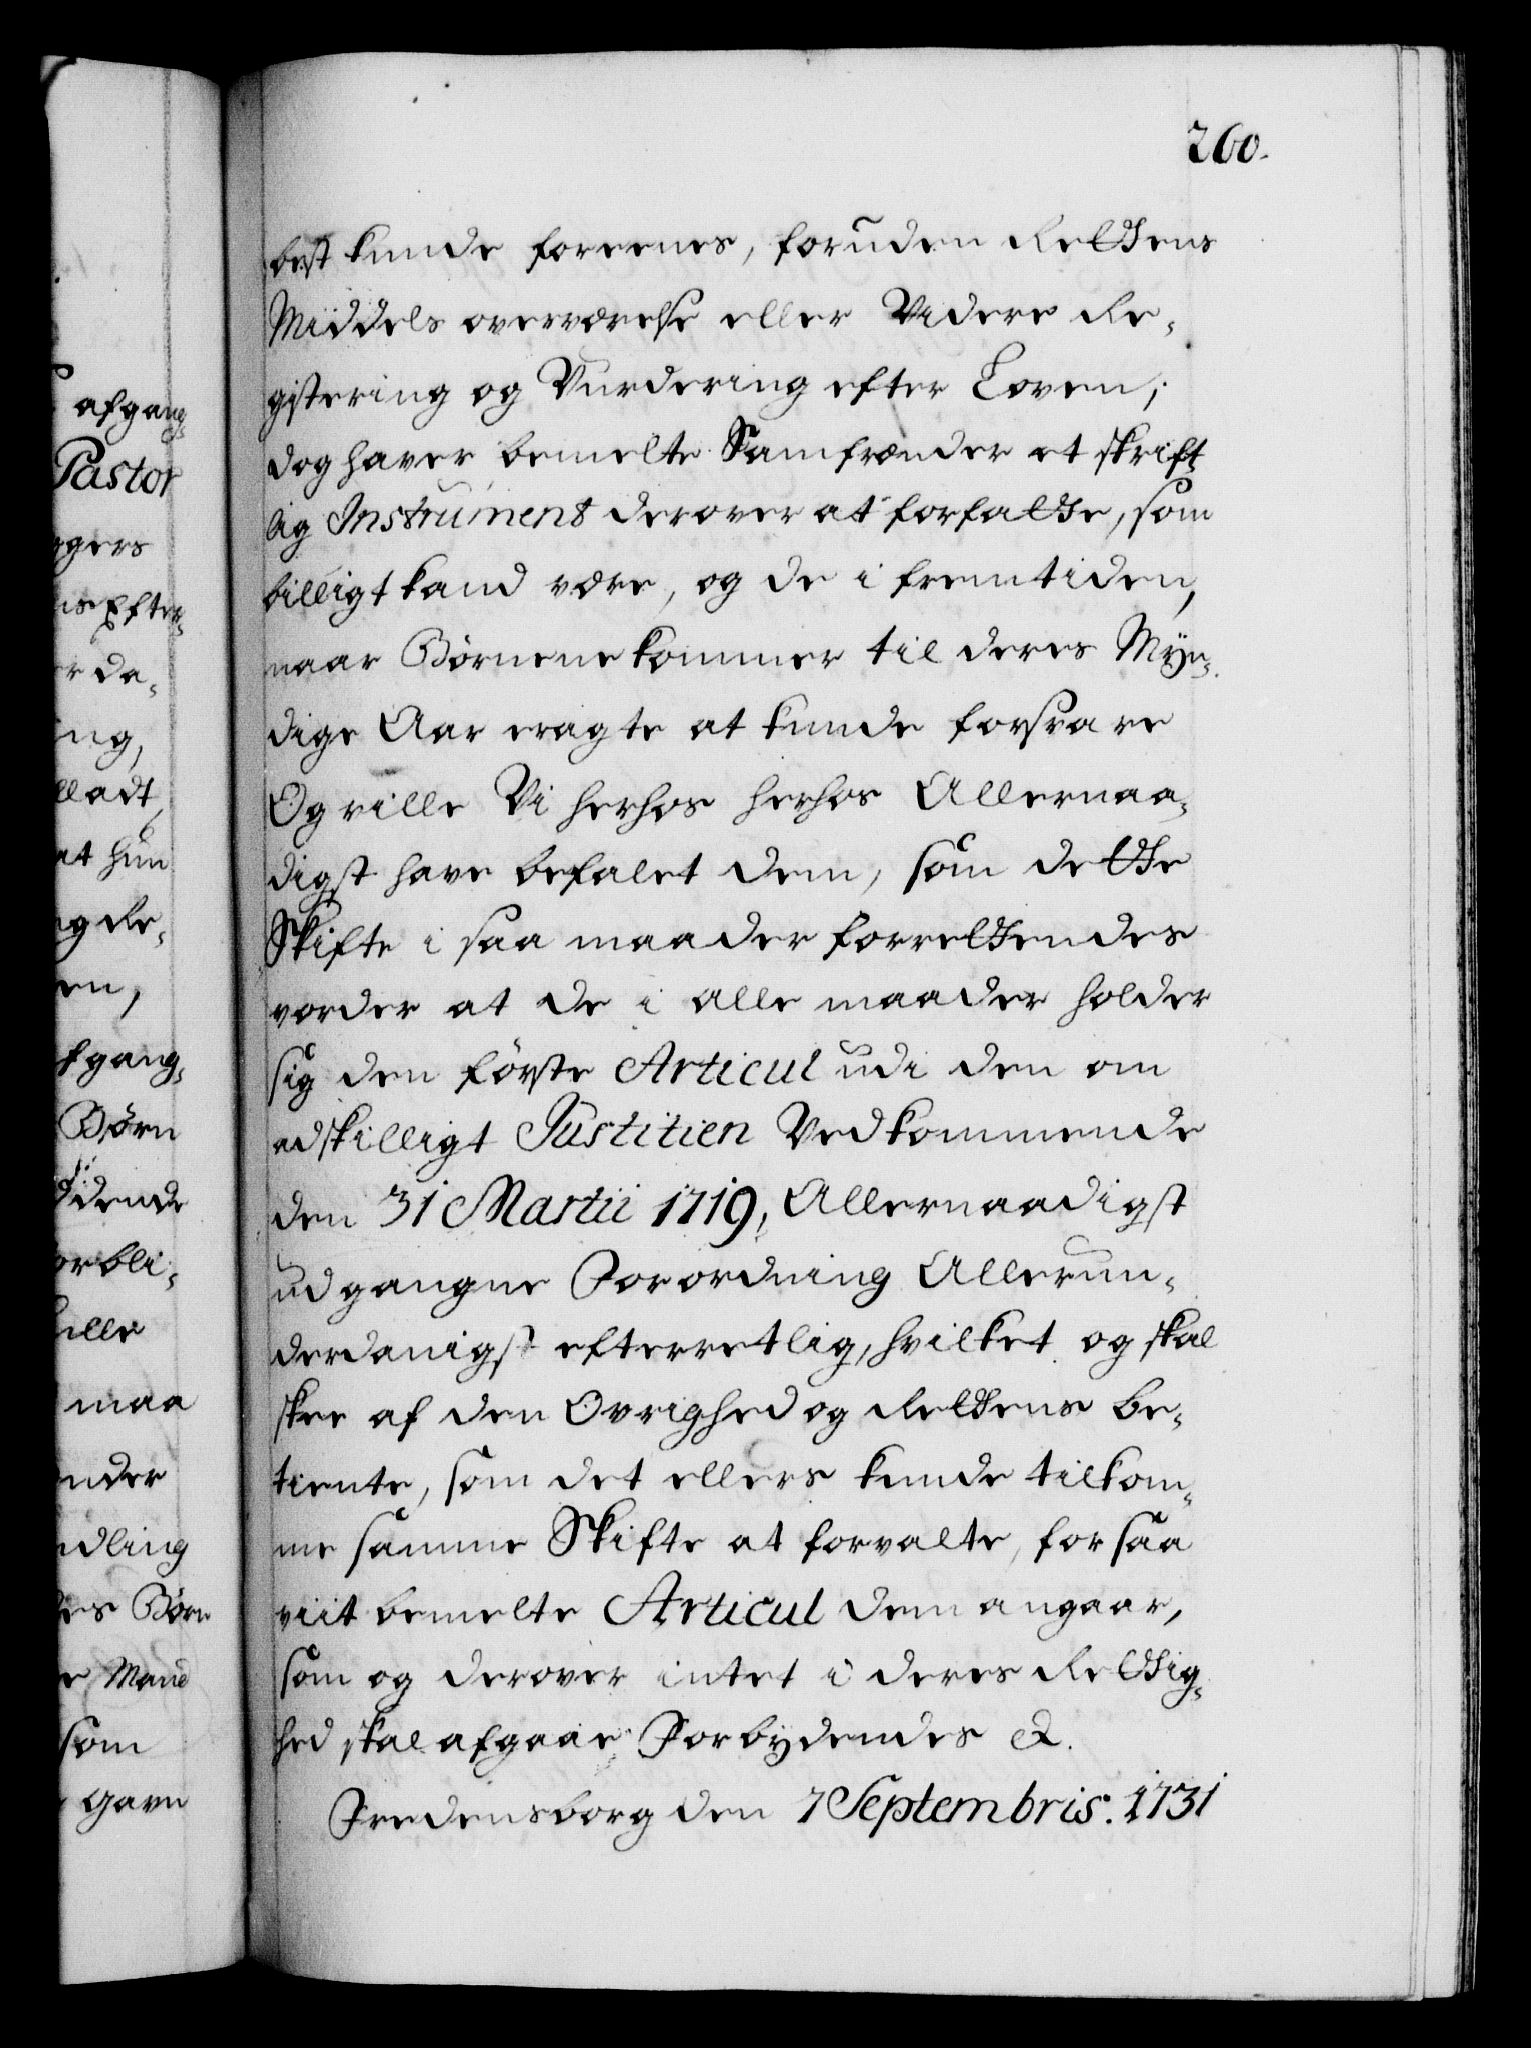 260.
best kunde foreenes, foruden Rettens
Middels overværelse eller Videre Re-
gistering og Vurdering efter Loven;
dog haver bemelte Samfrænder et skrift
lig Instrument derover at forfatte, som
billigt kand være, og de i fremtiden,
naar Børnene kommer til deres Myn-
dige Aar eragte at kunde forsvare
Og ville Vi herhos herhos Allernaa-
digst have befalet dem, som dette
Skifte i saa maader forrettendes
vorder at de i alle maader holder
sig den første Articul udi den om
adskilligt Justitien Vedkommende
den 31 Martii 1719, Allernaadigst
udgangne Forordning Allerun-
derdanigst efterretlig, hvilket og skal
skee af den Øvrighed og Rettens be-
tiente, som det ellers kunde tilkom-
me samme Skifte at forvalte, forsaa
viit bemelte Articul dem angaar,
som og derover intet i deres Rettig-
hed skal afgaae. Forbydendes &.
Fredensborg den 7 Septembris. 1731
afgang
Pastor
ggers
ns Efter-
er da-
ng,
lladt,
at hun
og Re-
en,
fgang-
Børn
dende
orbli-
ille
maa
nder
ndling
des Børn
e Mand
som
gavn